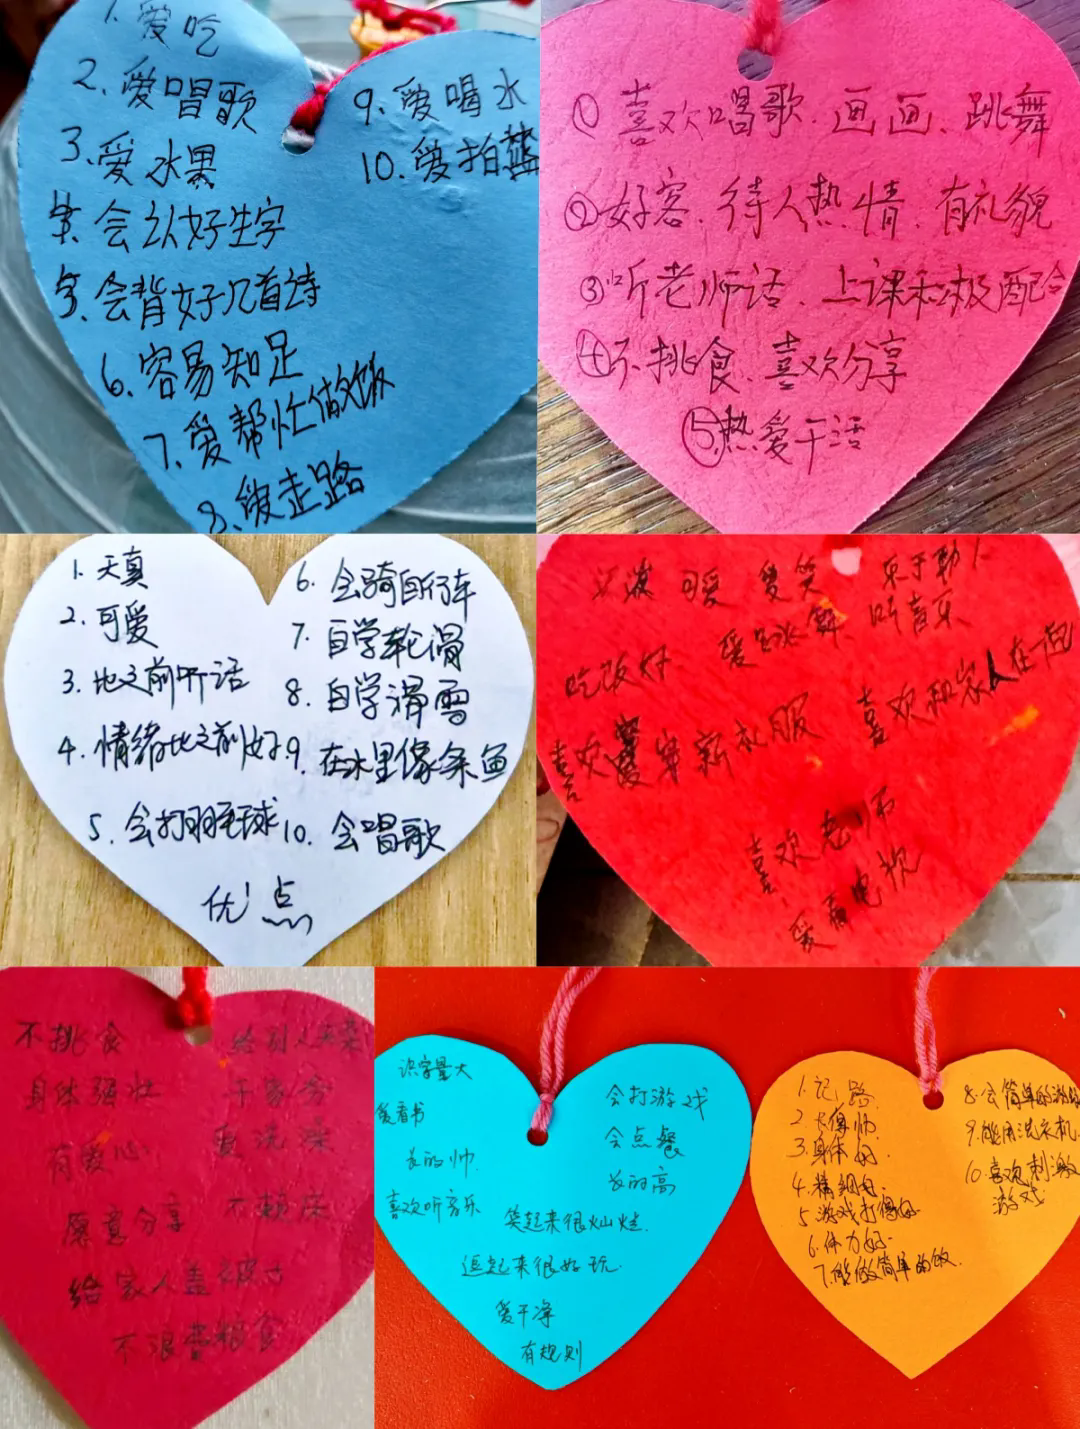 1. 爱吃
2. 爱唱歌
3. 爱水果
4. 会认好生字
5. 会背好几首诗
6. 容易知足
7. 爱帮忙做饭
8. 爱走路
9. 爱喝水
10. 爱拍
① 喜欢唱歌、画画、跳舞
② 好客、待人热情、有礼貌
③ 听老师话、上课积极配合
④ 不挑食、喜欢分享
⑤ 热爱干活
1. 天真
2. 可爱
3. 比之前听话
4. 情绪比之前好
5. 会打羽毛球
6. 会骑自行车
7. 自学轮滑
8. 自学滑雪
9. 在水里像条鱼
10. 会唱歌
优点
活泼 可爱 爱笑 乐于助人
吃饭好 爱跳舞 听音乐
喜欢穿新衣服 喜欢和家人在一起
喜欢老师
爱看电视
不挑食
身体强壮
有爱心
愿意分享
给家人盖被子
不浪费粮食
给别人夹菜
干家务
爱洗澡
不赖床
识字量大
爱看书
长的帅
喜欢听音乐
会打游戏
会点餐
长的高
笑起来很灿烂
逗起来很好玩
爱干净
有规则
1. 记路
2. 长得帅
3. 身体好
4. 精细好
5. 游戏打得好
6. 体力好
7. 能做简单的饭
8. 会简单的游
9. 能用洗衣机
10. 喜欢刺激
游戏